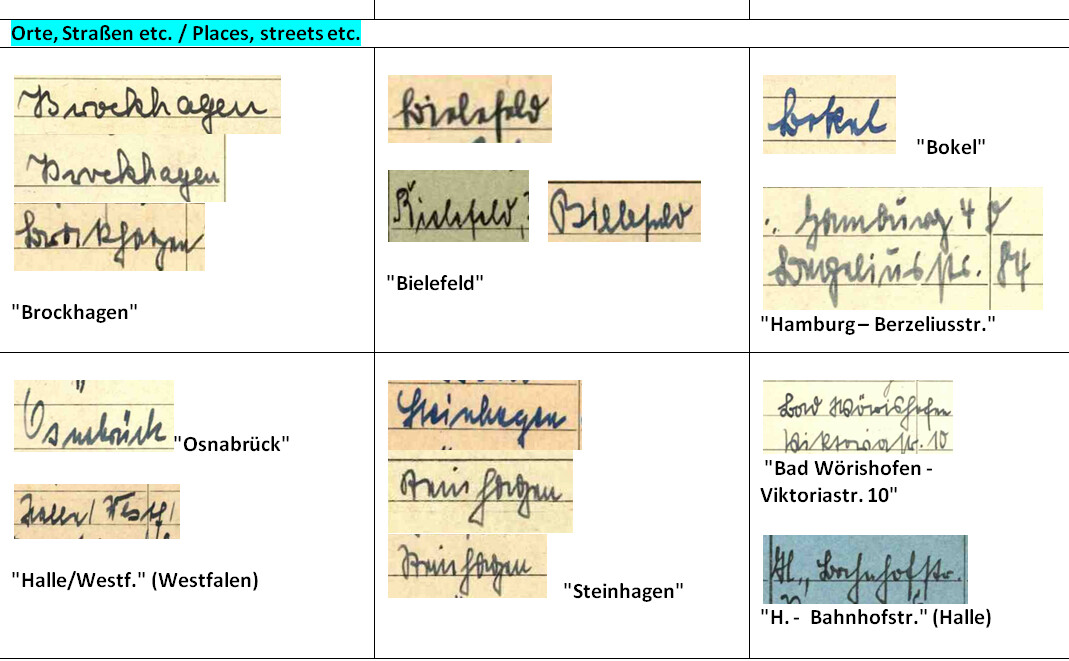 Orte, Straßen etc. / Places, streets etc.
Brockhagen
Brockhagen
Brockhagen
"Brockhagen"
Bielefeld
Bielefeld
Bielefeld
"Bielefeld"
Bokel
"Bokel"
Hamburg 48
Berzeliusstr. 84
"Hamburg – Berzeliusstr."
Osnabrück
"Osnabrück"
Halle/ Westf.
"Halle/Westf." (Westfalen)
Steinhagen
Steinhagen
Steinhagen
"Steinhagen"
Bad Wörishofen
Viktoriastr. 10
"Bad Wörishofen -
Viktoriastr. 10"
H., Bahnhofstr.
"H. - Bahnhofstr." (Halle)